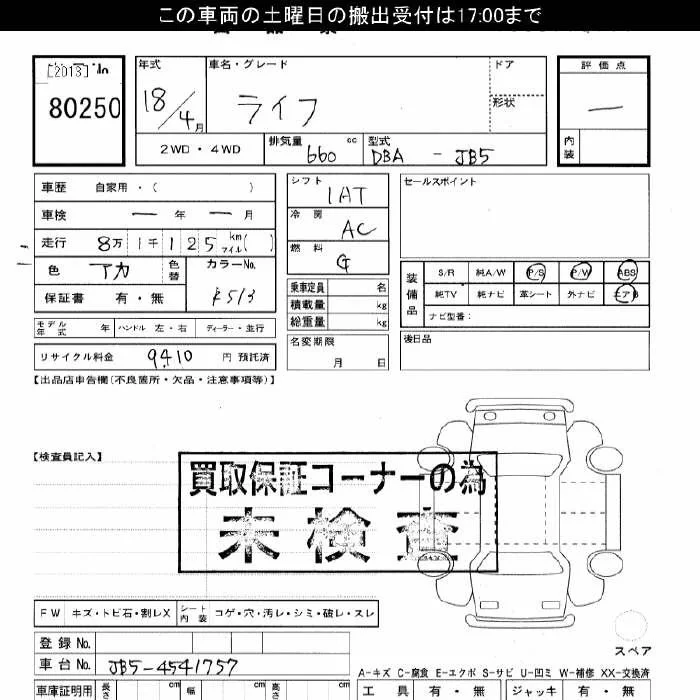 この車両の土曜日の搬出受付は17:00まで
[2013] No
80250
年式
18/4月
車名・グレード
ライフ
ドア
形状
評価点
—
内装
2WD・4WD
排気量
660 cc
型式
DBA - JB5
車歴 自家用・( )
車検 — 年 — 月
走行 8万1千125 km マイル( )
色 アカ 色替
カラーNo.
R513
保証書 有・無
シフト
IAT
冷房
AC
燃料
G
乗車定員 名
積載量 kg
総重量 kg
名変期限
月 日
セールスポイント
装備品
S/R 純A/W P/S P/W ABS
純TV 純ナビ 革シート 外ナビ エアB
ナビ型番:
後日品
モデル年式 年 ハンドル 左・右 ディーラー・並行
リサイクル料金 9410 円 預託済
【出品店申告欄(不良箇所・欠品・注意事項等)】
【検査員記入】
買取保証コーナーの為
未検査
FW キズ・トビ石・割レX シート内装 コゲ・穴・汚レ・シミ・破レ・スレ
登録No.
車台No. JB5-4541757
スペア
A-キズ C-腐食 E-エクボ S-サビ U-凹ミ W-補修 XX-交換済
車庫証明用 長さ cm 幅 cm 高さ cm
工具 有・無 ジャッキ 有・無